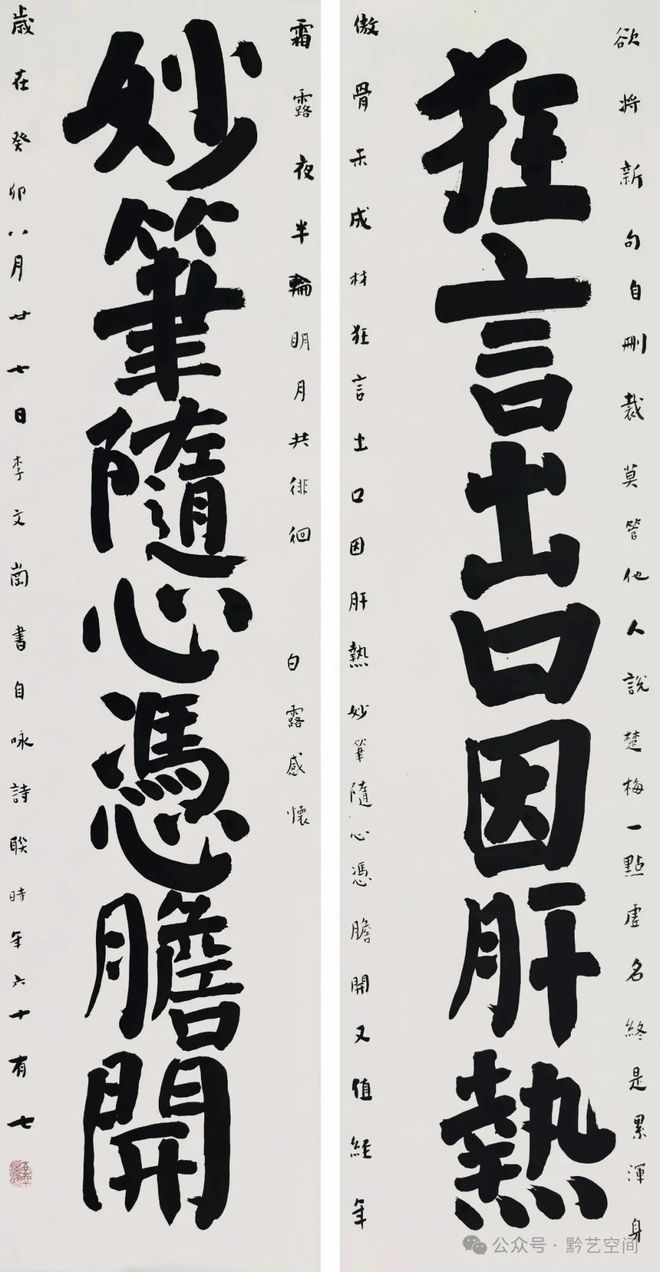 欲將新句自刪裁莫管他人說楚梅一點虛名終是累渾身
狂言出口因肝熱
傲骨未成材狂言出口因肝熱妙筆隨心憑膽開又值經年
霜露夜半輪明月共徘徊 白露感懷
妙筆隨心憑膽開
歲在癸卯八月廿七日李文崗書自咏詩聯時年六十有七
公众号·黔艺空间